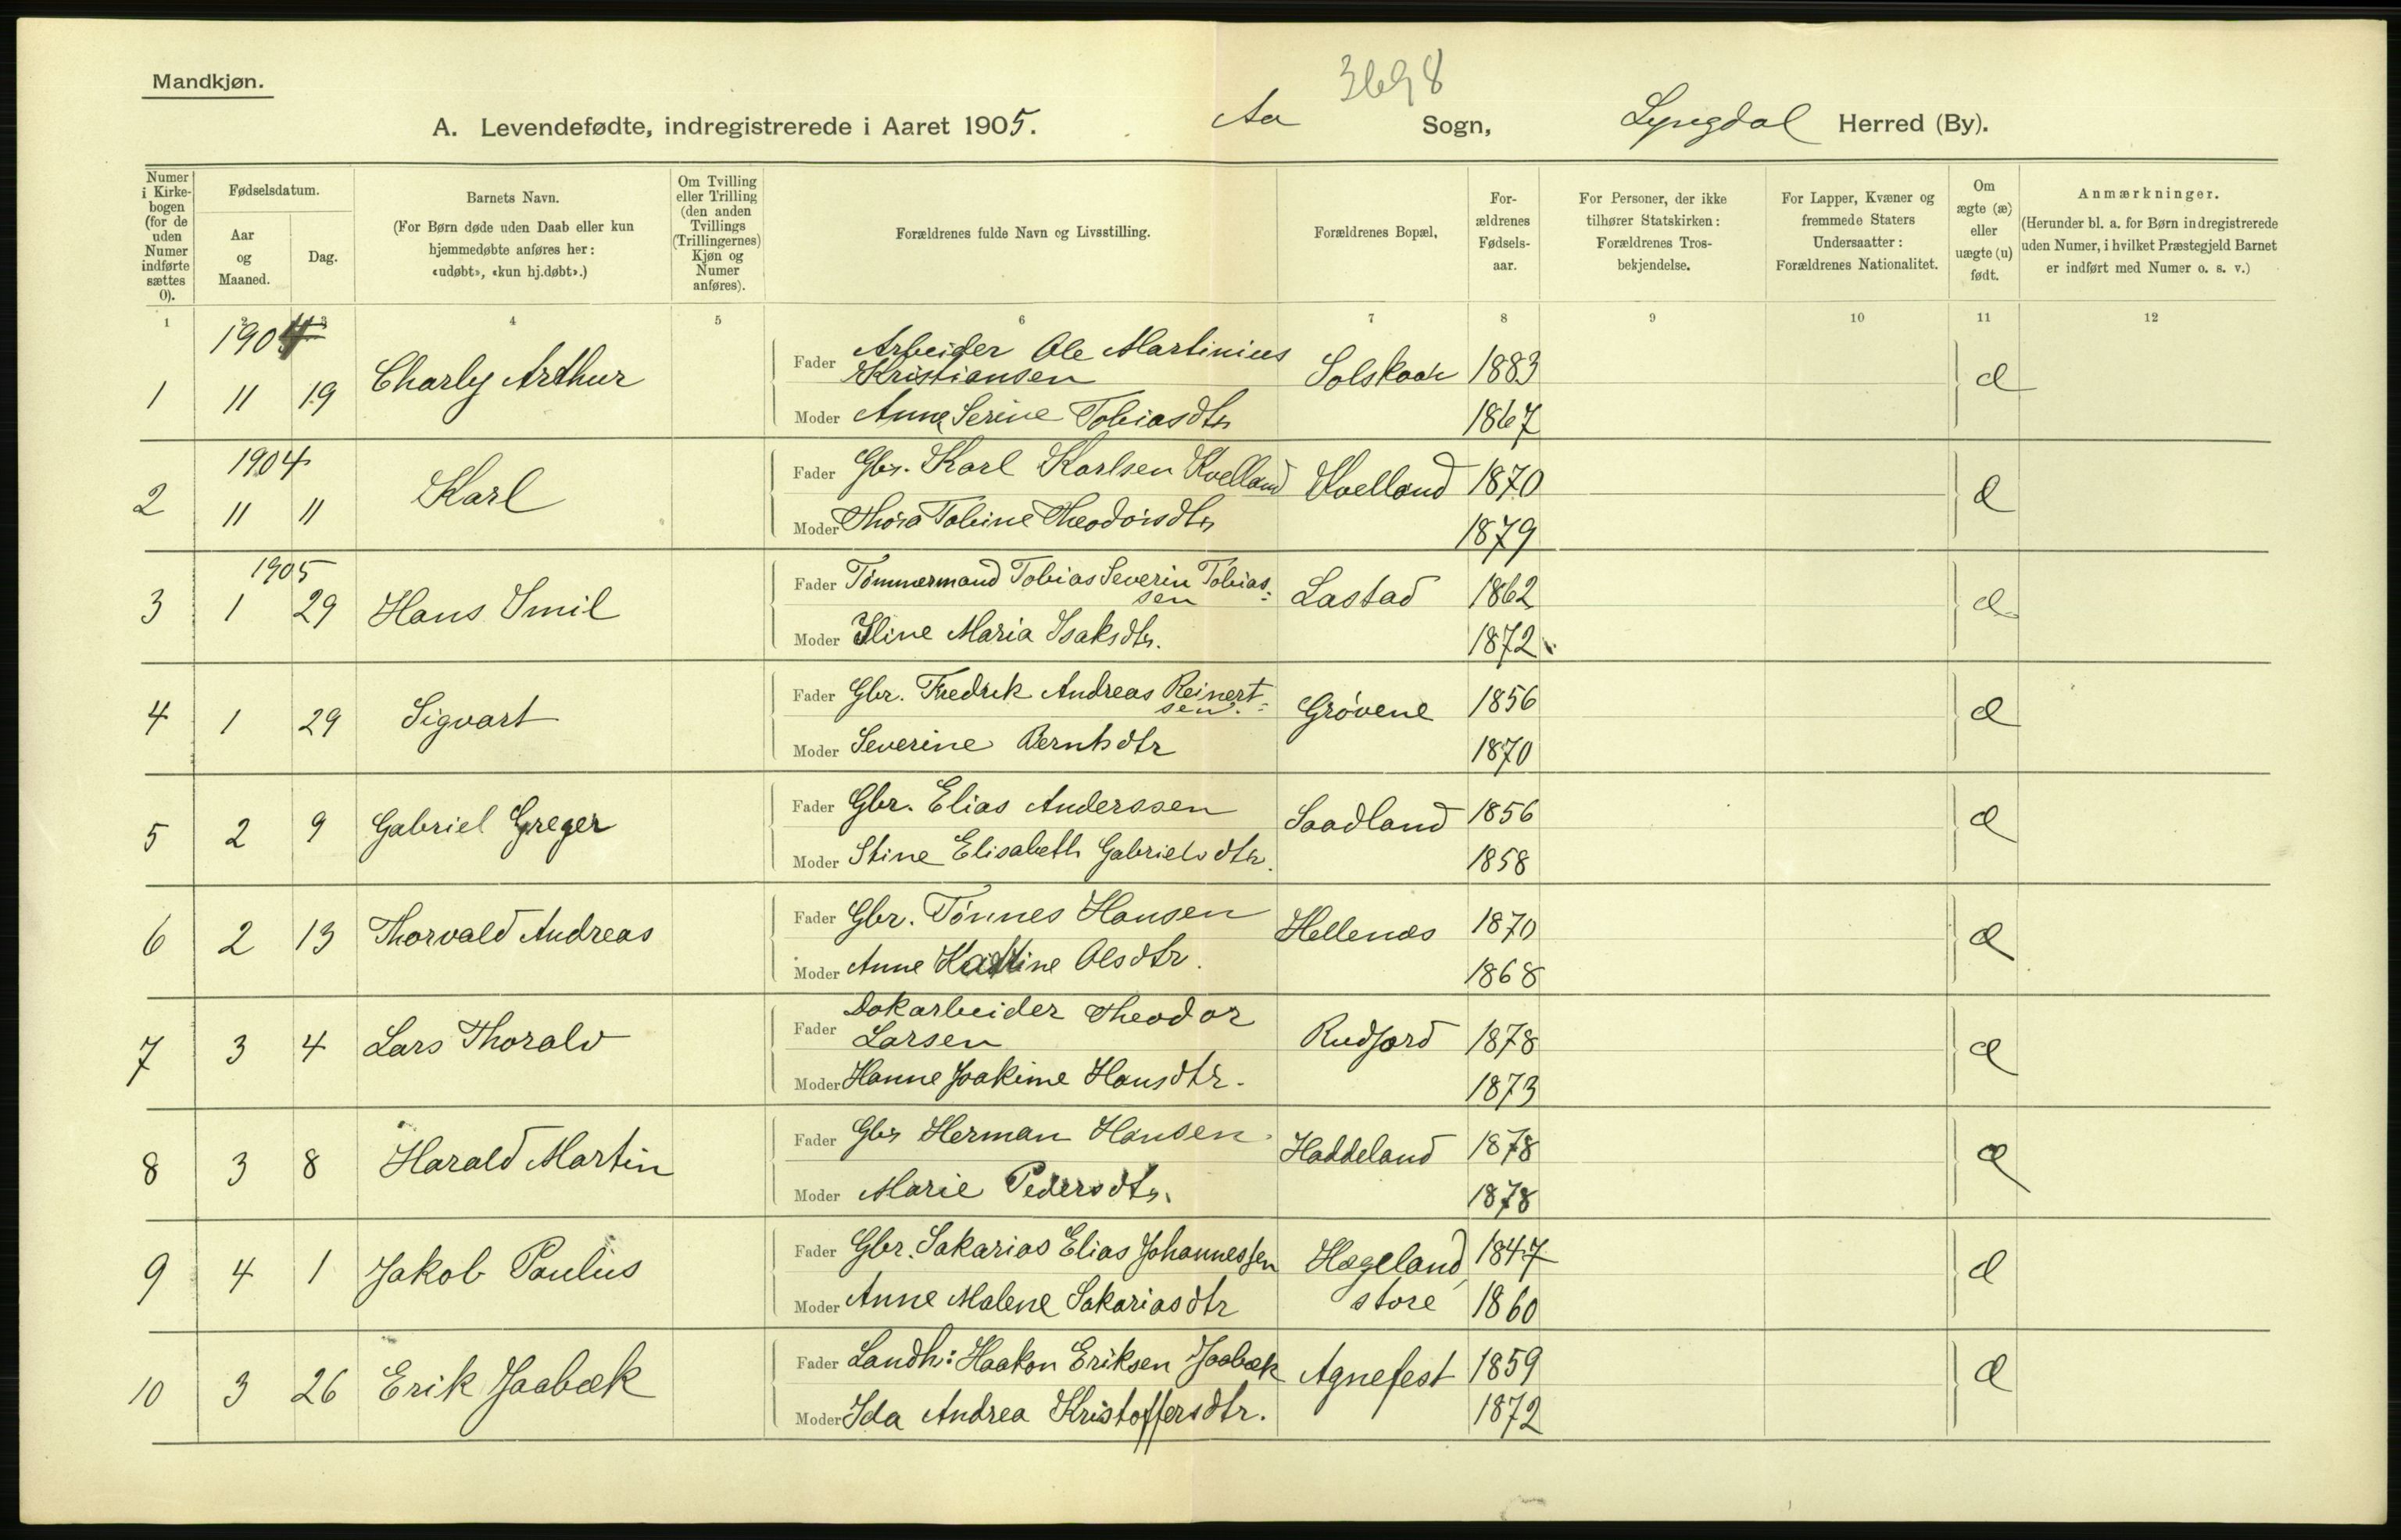 3698
Mandkjøn.
A. Levendefødte, indregistrerede i Aaret 1905. Aa Sogn, Lyngdal Herred (By).
Numer i Kirke-bogen (for de uden Numer indførte sættes 0).
Fødselsdatum.
Aar og Maaned.
Dag.
Barnets Navn.
(For Børn døde uden Daab eller kun hjemmedøbte anføres her: «udøbt», «kun hj.døbt».)
Om Tvilling eller Trilling (den anden Tvillings (Trillingernes) Kjøn og Numer anføres).
Forældrenes fulde Navn og Livsstilling.
Forældrenes Bopæl.
For-ældrenes Fødsels-aar.
For Personer, der ikke tilhører Statskirken: Forældrenes Tros-bekjendelse.
For Lapper, Kvæner og fremmede Staters Undersaatter: Forældrenes Nationalitet.
Om ægte (æ) eller uægte (u) født.
Anmærkninger.
(Herunder bl. a. for Børn indregistrerede uden Numer, i hvilket Præstegjeld Barnet er indført med Numer o. s. v.)
1 2 3 4 5 6 7 8 9 10 11 12
1904
1 11 19 Charly Arthur Fader Arbeider Ole Martinius Kristiansen 1883 æ
Moder Anne Serine Tobiasdtr 1867
1904
2 11 11 Karl Fader Gbr. Karl Karlsen Kvelland Kvelland 1870 æ
Moder Thora Tobine Theodorsdtr 1879
1905
3 1 29 Hans Emil Fader Tømmermand Tobias Severin Tobias-sen Lastad 1862 æ
Moder Eline Maria Isaksdtr. 1872
4 1 29 Sigvart Fader Gbr. Fredrik Andreas Reinert-sen. Grøvene 1856 æ
Moder Severine Berntsdtr 1870
5 2 9 Gabriel Greger Fader Gbr. Elias Anderssen Saadland 1856 æ
Moder Stine Elisabeth Gabrielsdtr. 1858
6 2 13 Thorvald Andreas Fader Gbr. Tønnes Hansen Hellenes 1870 æ
Moder Anne Olsdtr. 1868
7 3 4 Lars Thoralv Fader Dokarbeider Theodor Larsen Rudjord 1878 æ
Moder Hanne Joakime Hansdtr. 1873
8 3 8 Harald Martin Fader Gbr Herman Hansen Haddeland 1878 æ
Moder Marie Pedersdtr. 1878
9 4 1 Jakob Paulus Fader Gbr. Sakarias Elias Johannessen Hægeland 1847 æ
Moder Anne Malene Sakariasdtr store 1860
10 3 26 Erik Jaabæk Fader Landh: Haakon Eriksen Jaabæk Agnefest 1859 æ
Moder Ida Andrea Kristoffersdtr. 1872